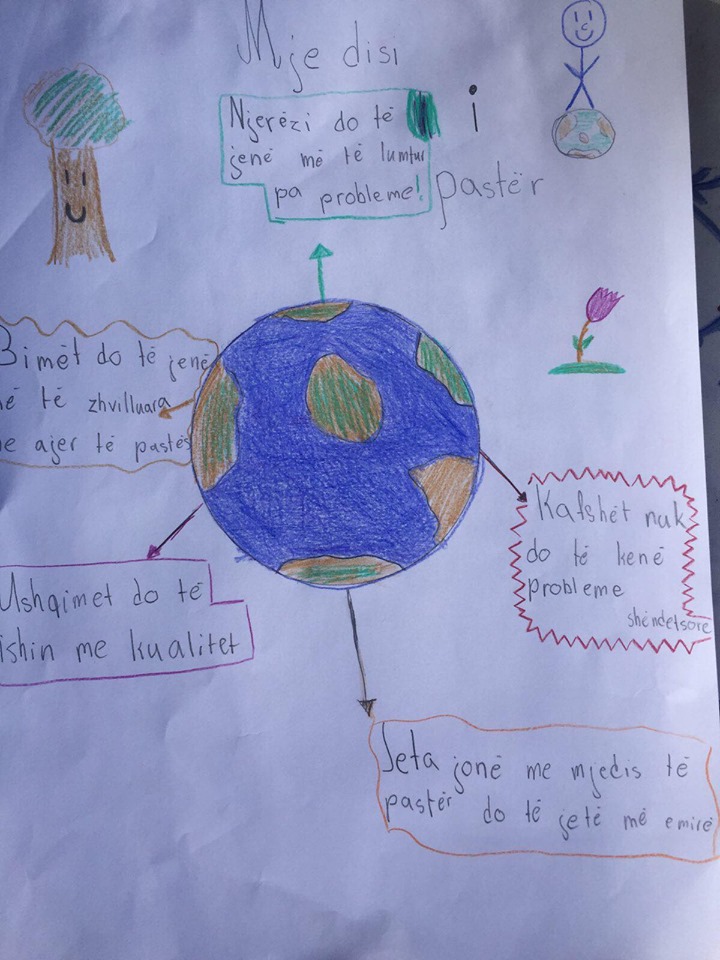 Mje disi
i
pastër
Njerëzi do të
jenë më të lumtur
pa probleme!
Bimët do të jenë
më të zhvilluara
me ajer të pastës
Kafshët nuk
do të kenë
probleme
shëndetsore
Ushqimet do të
ishin me kualitet
Jeta jonë me mjedis të
pastër do të jetë më emirë